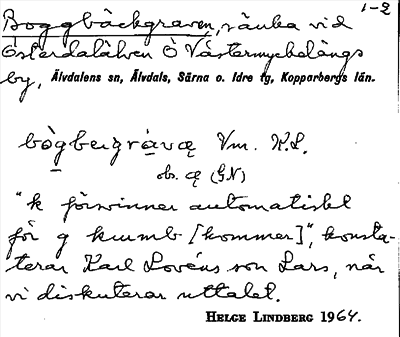 1-2
Boggbäckgraven, sänka vid
Österdalälven Ö Västermyckelängs
by, Älvdalens sn, Älvdals, Särna o. Idre tg, Kopparbergs län.
bògbergràvæ Vm. K.L.
ob. æ (GN)
"k försvinner automatiskt
för g kumb [kommer]", konsta-
terar Karl Lovéns son Lars, när
vi diskuterar uttalet.
HELGE LINDBERG 1964.